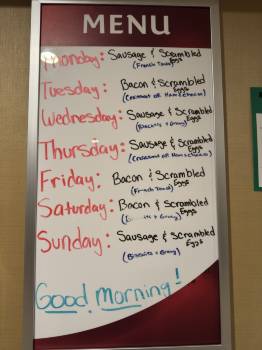 MENU
Monday: Sausage & Scrambled Eggs
(French Toast)
Tuesday: Bacon & Scrambled Eggs
(Croissant off Ham & Cheese)
Wednesday: Sausage & Scrambled Eggs
(Biscuits & Gravy)
Thursday: Sausage & Scrambled Eggs
(Croissant off Ham & Cheese)
Friday: Bacon & Scrambled Eggs
(French Toast)
Saturday: Bacon & Scrambled Eggs
& Gravy)
Sunday: Sausage & Scrambled Eggs
(Biscuits & Gravy)
Good Morning!